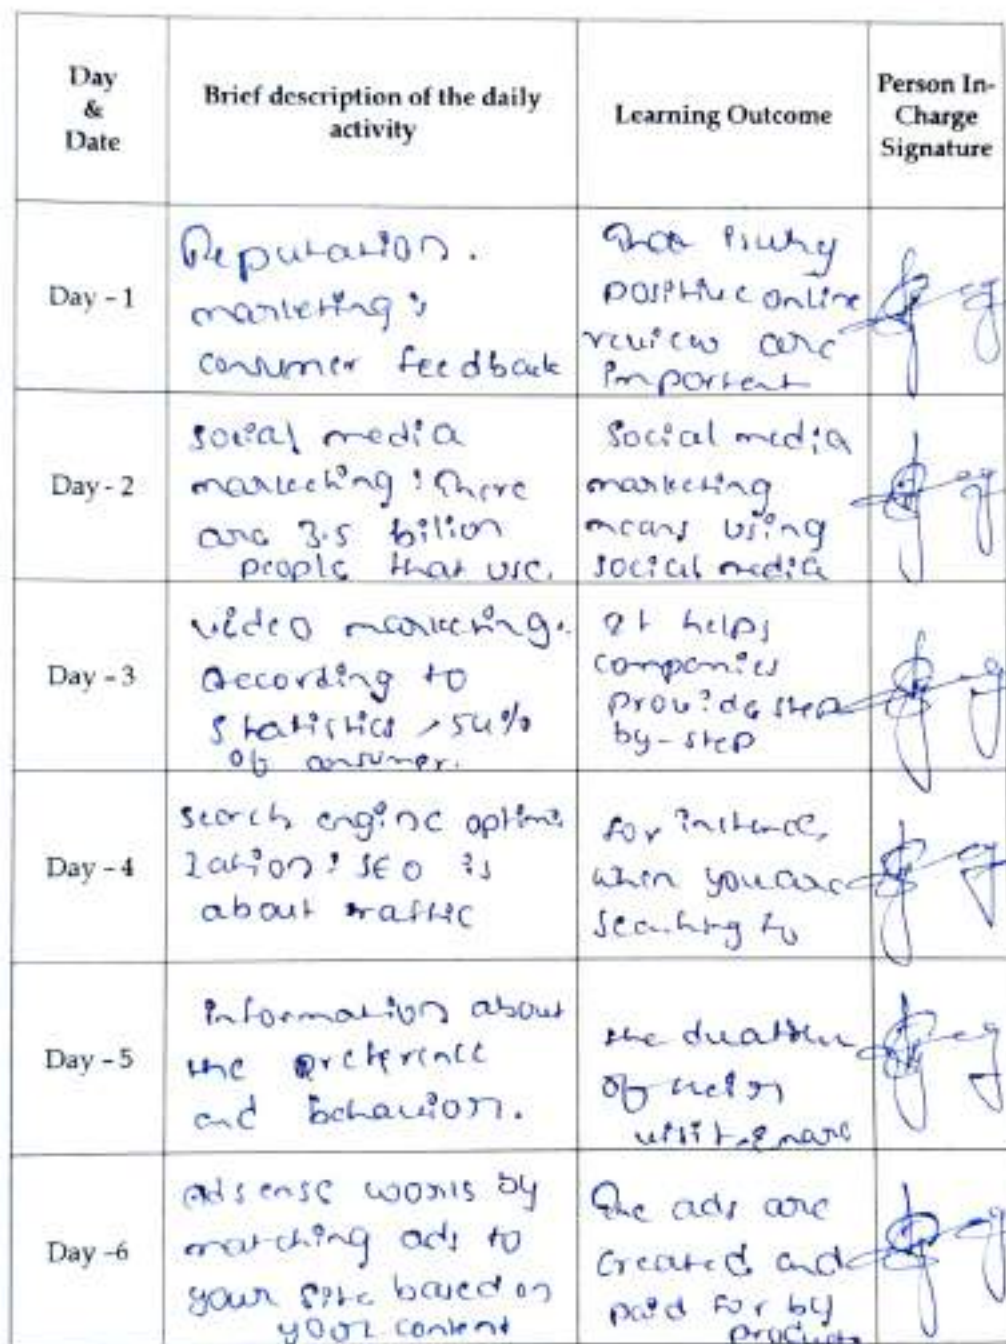 Day
&
Date
Brief description of the daily
activity
Learning Outcome
Person In-
Charge
Signature
Day - 1
Reputation.
marketing :
consumer feedback
That is why
positive online
review are
important
Day - 2
social media
marketing : There
are 3.5 bilion
people that use.
Social media
marketing
means using
social media
Day - 3
video marketing.
According to
statistics, 54%
of consumer.
It helps
companies
provide step
by-step
Day - 4
search engine optimi
zation : SEO is
about traffic
for instence,
when you are
searching to
Day - 5
information about
the preference
and behavior.
the duration
of their
visit
Day -6
adsense works by
matching ads to
your site based on
your content
The ads are
created and
paid for by